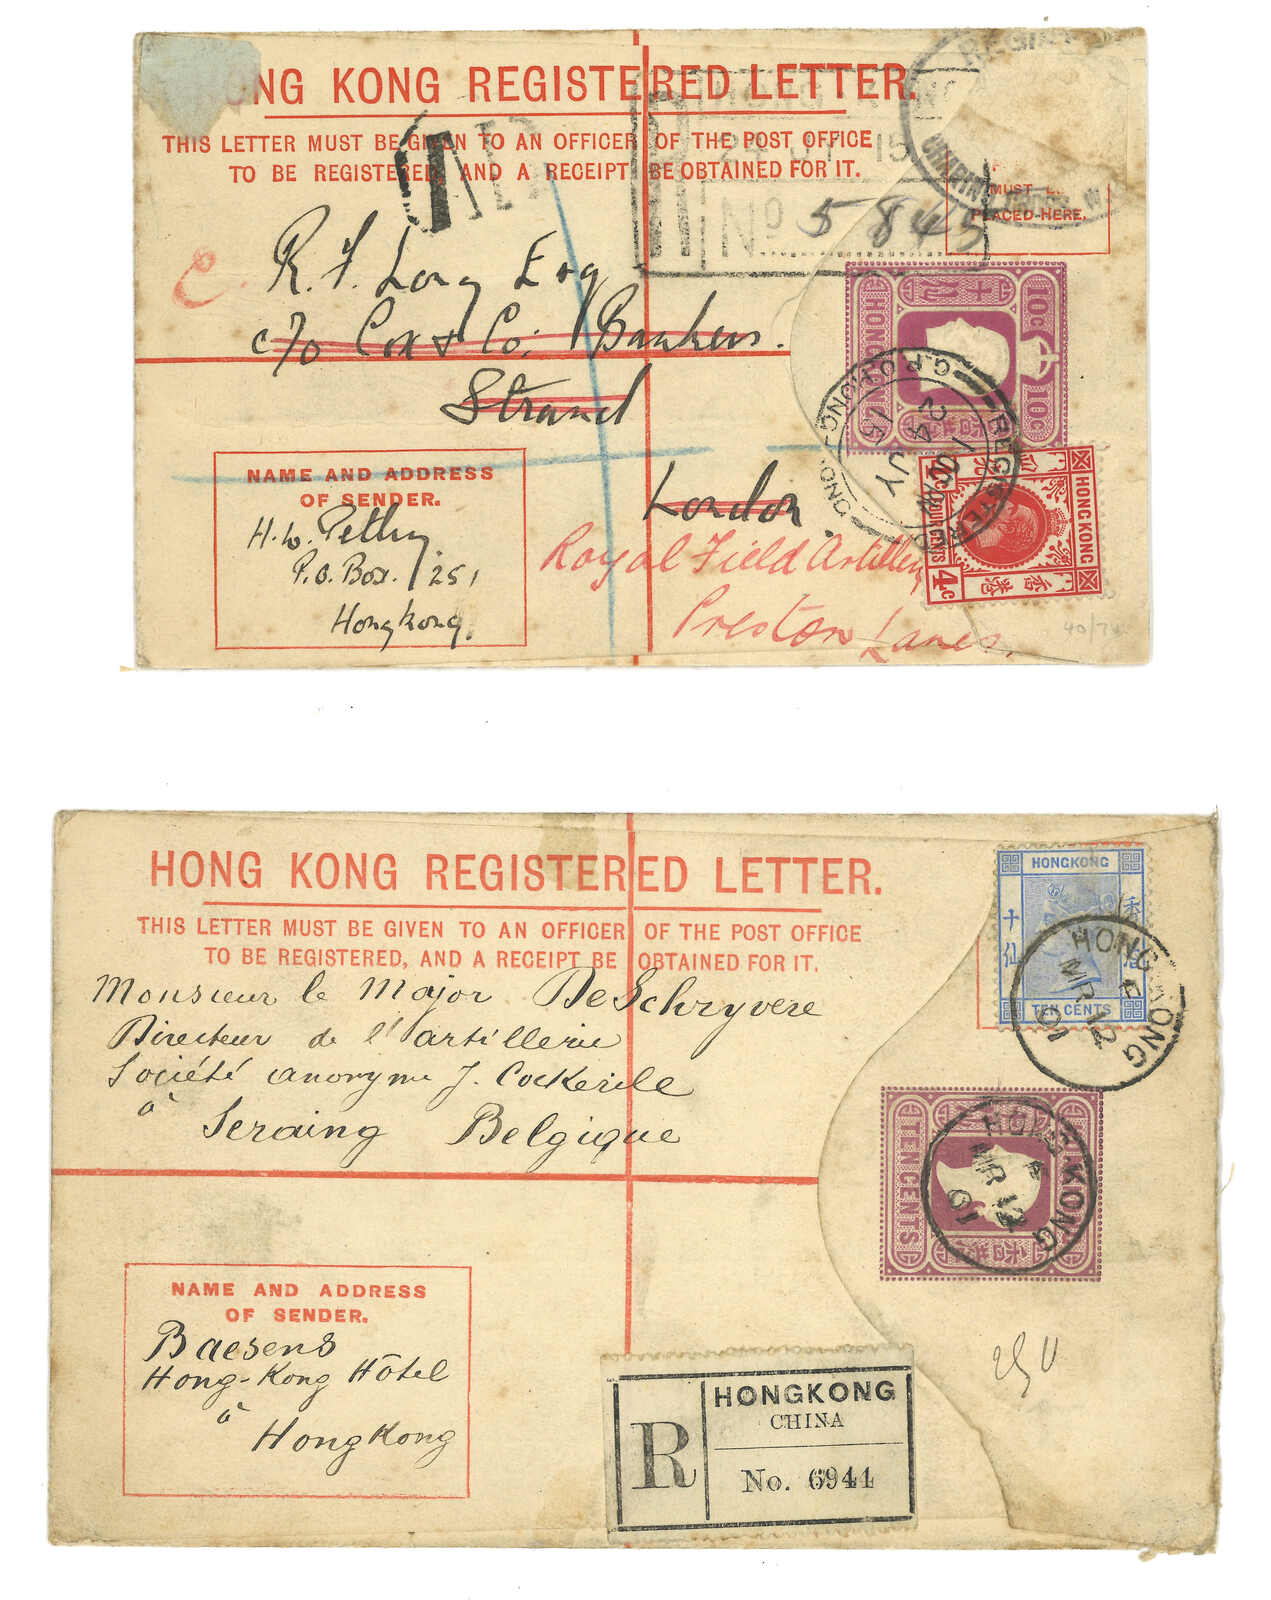 HONG KONG REGISTERED LETTER.
THIS LETTER MUST BE GIVEN TO AN OFFICER OF THE POST OFFICE
TO BE REGISTERED, AND A RECEIPT BE OBTAINED FOR IT.
MUST
PLACED HERE.
24 JY 15
No 5845
R. F. Long Esq
c/o Cox & Co. Bankers.
Strand
London.
Royal Field Artillery
Preston Lancs.
NAME AND ADDRESS
OF SENDER.
P.O. Box. 251
Hongkong.
HONG KONG
10C
10C
REGISTERED
G.P.O. HONG KONG
24 JY
15
HONG KONG
FOUR CENTS
4C
香港
40/74
HONG KONG REGISTERED LETTER.
THIS LETTER MUST BE GIVEN TO AN OFFICER OF THE POST OFFICE
TO BE REGISTERED, AND A RECEIPT BE OBTAINED FOR IT.
Monsieur le Major De Schryvere
Directeur de l'artillerie
Société anonyme J. Cockerile
à Seraing Belgique
NAME AND ADDRESS
OF SENDER.
Baesens
Hong-Kong Hôtel
à
Hongkong
HONGKONG
十仙
香港
TEN CENTS
HONG KONG
MR 12
01
TEN CENTS
HONG KONG
A
MR 12
01
R
HONGKONG
CHINA
No. 6944